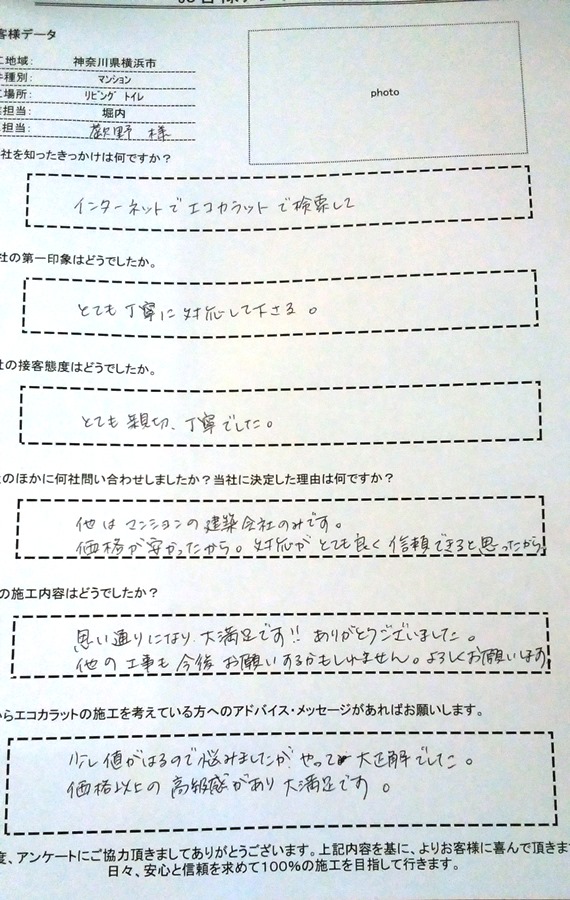 客様データ
工地域: 神奈川県横浜市
件種別: マンション
工場所: リビング トイレ
担当: 堀内
担当: 歌野 様
photo
社を知ったきっかけは何ですか?
インターネットでエコカラットで検索して
社の第一印象はどうでしたか。
とても丁寧に対応して下さる。
社の接客態度はどうでしたか。
とても親切、丁寧でした。
のほかに何社問い合わせしましたか?当社に決定した理由は何ですか?
他はマンションの建築会社のみです。
価格が安かったから。対応がとても良く信頼できると思ったから。
の施工内容はどうでしたか?
思い通りになり、大満足です!! ありがとうございました。
他の工事も今後お願いするかもしれません。よろしくお願いします
からエコカラットの施工を考えている方へのアドバイス・メッセージがあればお願いします。
少し値がはるので悩みましたが、やって大正解でした。
価格以上の高級感があり大満足です。
度、アンケートにご協力頂きましてありがとうございます。上記内容を基に、よりお客様に喜んで頂きます
日々、安心と信頼を求めて100%の施工を目指して行きます。